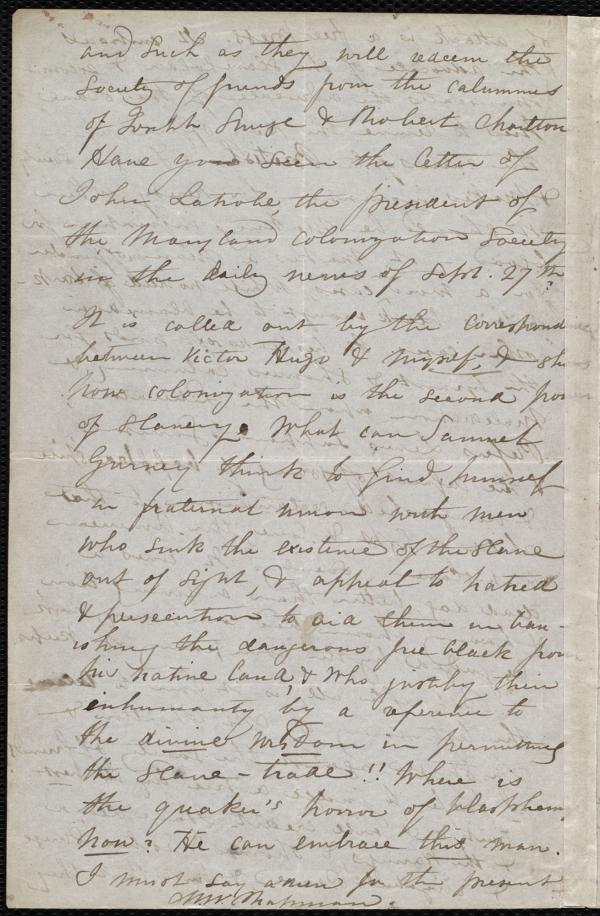 and such as they will redeem the
Society of friends from the calumnies
of Joseph Sturge & Robert Charlton
Have you seen the letter of
John Latrobe, the president of
the Maryland colonization Society
in the daily news of Sept. 27th?
It is called out by the correspond
between Victor Hugo & myself, & sh
how colonization is the second
of slavery. What can Samuel
Gurney think to find himself
in fraternal union with men
who sink the existence of the slave
out of sight, & appeal to hatred
& persecution to aid them in ban-
ishing the dangerous free black from
his native land, & who justify their
inhumanity by a reference to
the divine wisdom in permitting
the slave-trade!! Where is
the quaker's horror of blasphem
now? He can embrace this man.
I must say amen for the present.
Chapman.